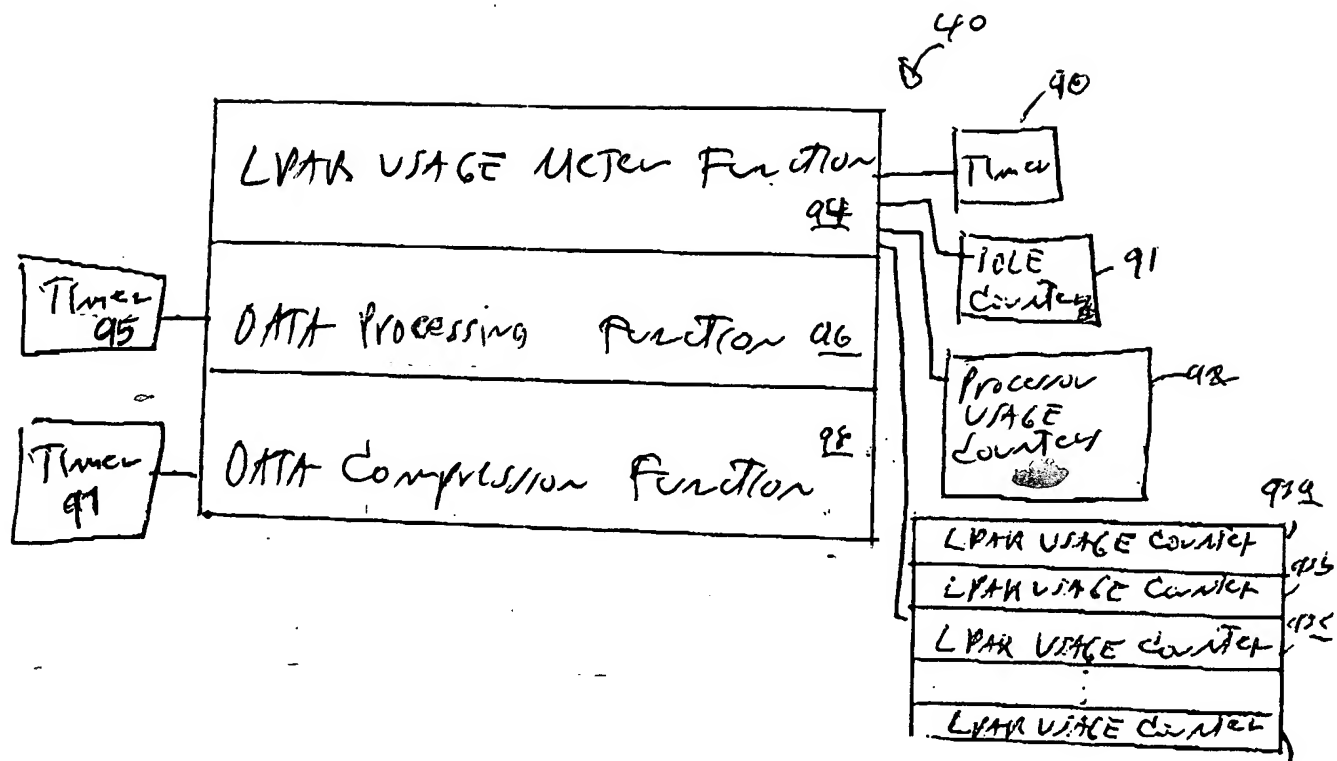 40
90
LPAR USAGE Meter Function
94
Timer
IDLE
Counter
91
Timer
95
DATA Processing Function 96
Processor
USAGE
Counters
92
Timer
97
DATA Compression Function
98
93a
LPAR USAGE Counter
93b
LPAR USAGE Counter
93c
LPAR USAGE Counter
LPAR USAGE Counter